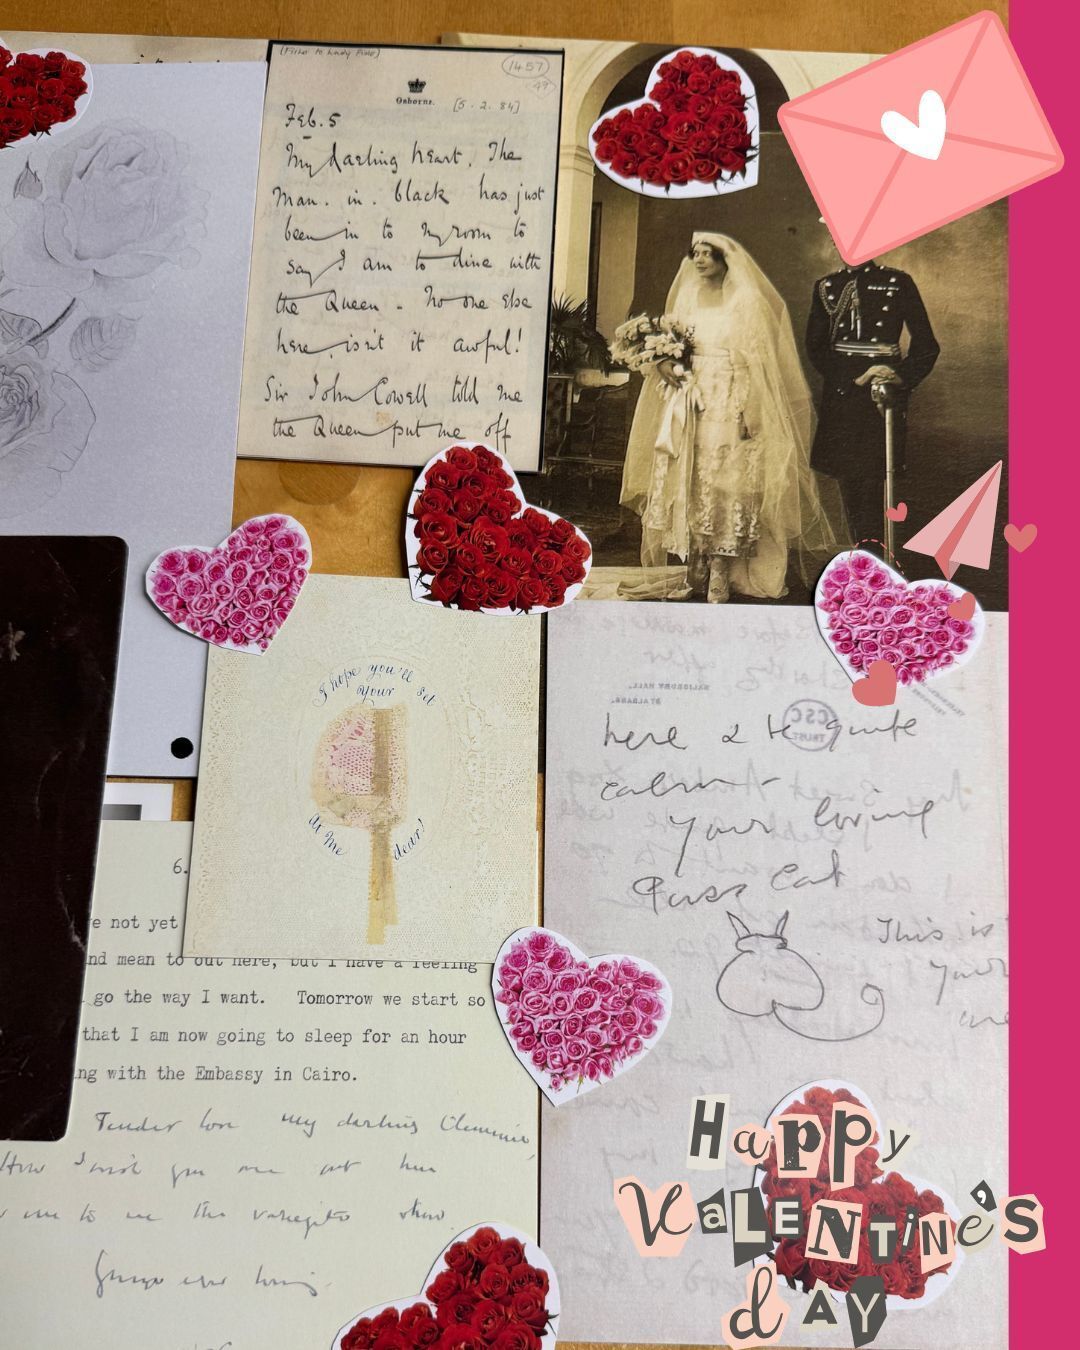 (Fisher to Lady Fisher)
1457
47
Osborne.
[5. 2. 84]
Feb. 5
My darling heart. The
Man. in. black has just
been in to my room to
say I am to dine with
the Queen - No one else
here, isn't it awful!
Sir John Cowell told me
the Queen put me off
I hope you'll set
Your
At me
dear!
SALISBURY HALL,
ST ALBANS.
CSC
TRUST
here & to quite
calm
Your loving
Puss Cat
This is
your
6.
e not yet
nd mean to out here, but I have a feeling
go the way I want. Tomorrow we start so
that I am now going to sleep for an hour
ng with the Embassy in Cairo.
Tender love my darling Clemmie,
How I wish you were out here
to me the
ever loving
Happy
Valentine's
day